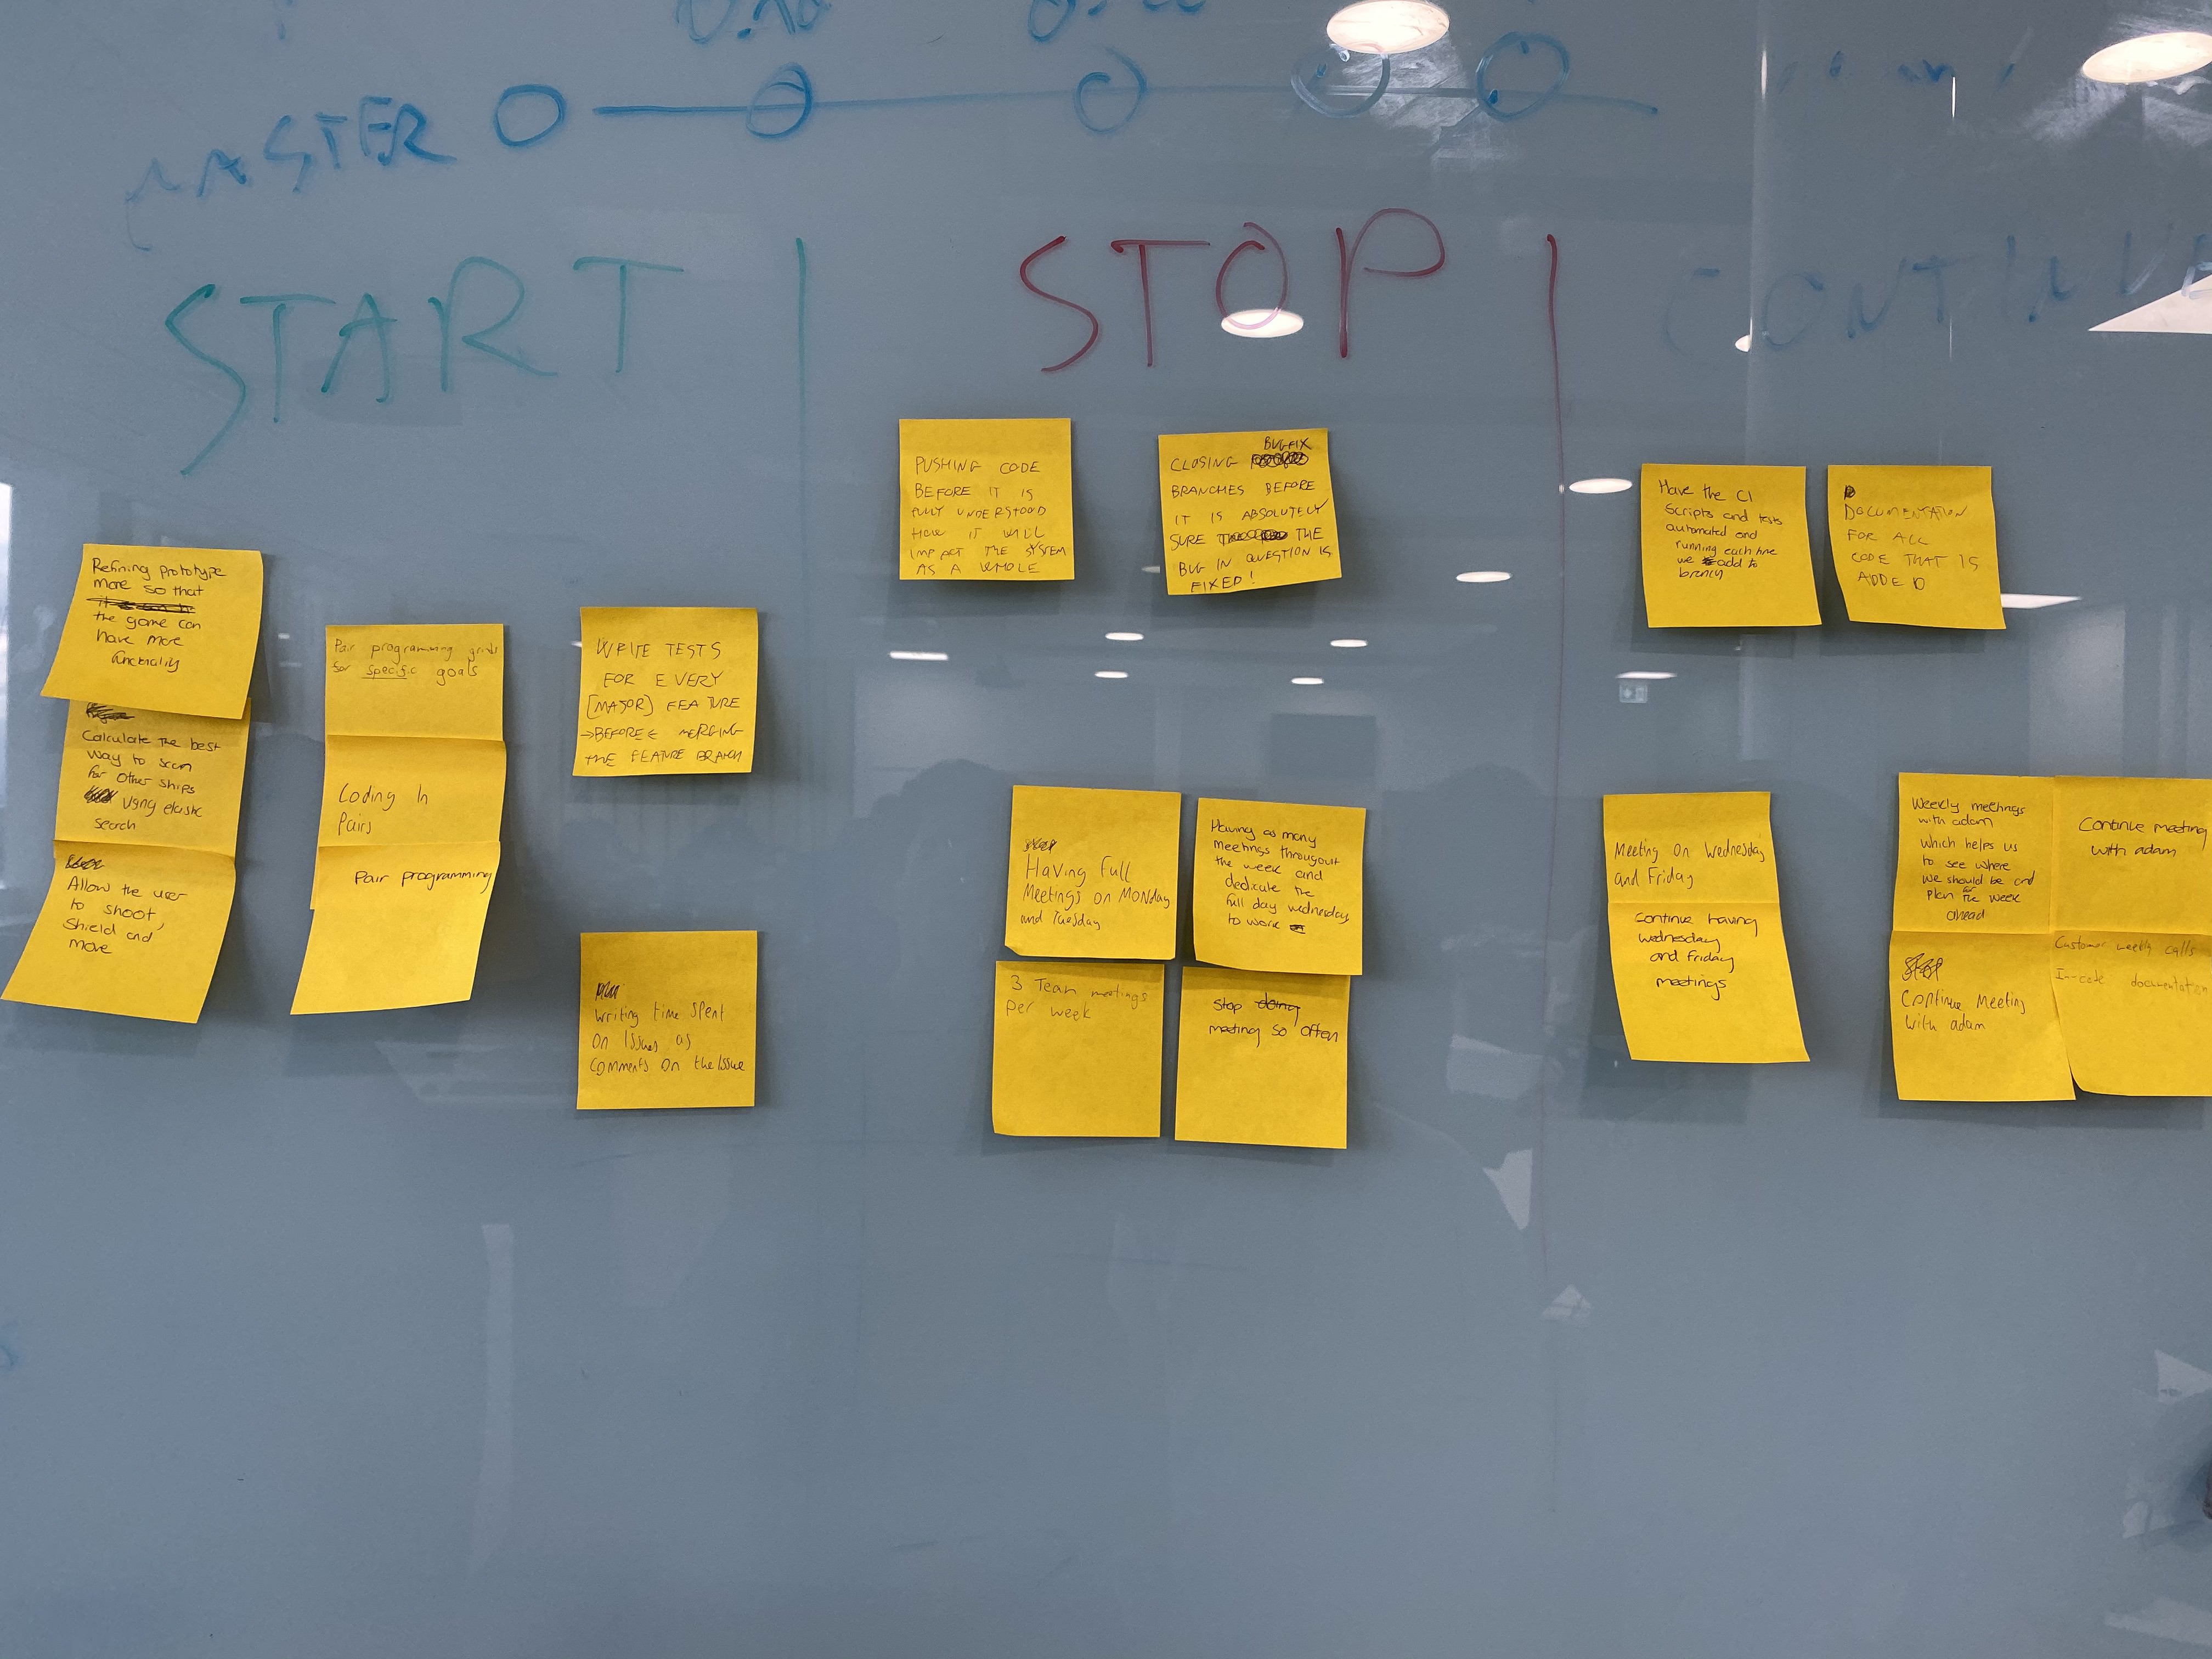 MASTER
START
STOP
CONTINUE
Refining prototype
more so that
the game can
have more
functionality
Calculate the best
way to scan
for other ships
using elastic
search
Allow the user
to shoot,
shield and
move
Pair programming
for specific goals
Coding In
Pairs
Pair programming
WRITE TESTS
FOR EVERY
[MAJOR] FEATURE
→BEFORE← MERGING
THE FEATURE BRANCH
Writing time spent
on Issues as
comments on the Issue
PUSHING CODE
BEFORE IT IS
FULLY UNDERSTOOD
HOW IT WILL
IMPACT THE SYSTEM
AS A WHOLE
BUGFIX
CLOSING
BRANCHES BEFORE
IT IS ABSOLUTELY
SURE THE
BUG IN QUESTION IS
FIXED!
Having Full
Meetings on Monday
and Tuesday
Having as many
meetings througout
the week and
dedicate the
full day wednesday
to work
3 Team meetings
per week
stop doing
meeting so often
Have the CI
Scripts and tests
automated and
running each time
we add to
branch
DOCUMENTATION
FOR ALL
CODE THAT IS
ADDED
Meeting on Wednesday
and Friday
Continue having
wednesday
and Friday
meetings
Weekly meetings
with adam
which helps us
to see where
we should be and
plan for the week
ahead
Continue meeting
with adam
Continue Meeting
with adam
Customer weekly calls
In-code documentation